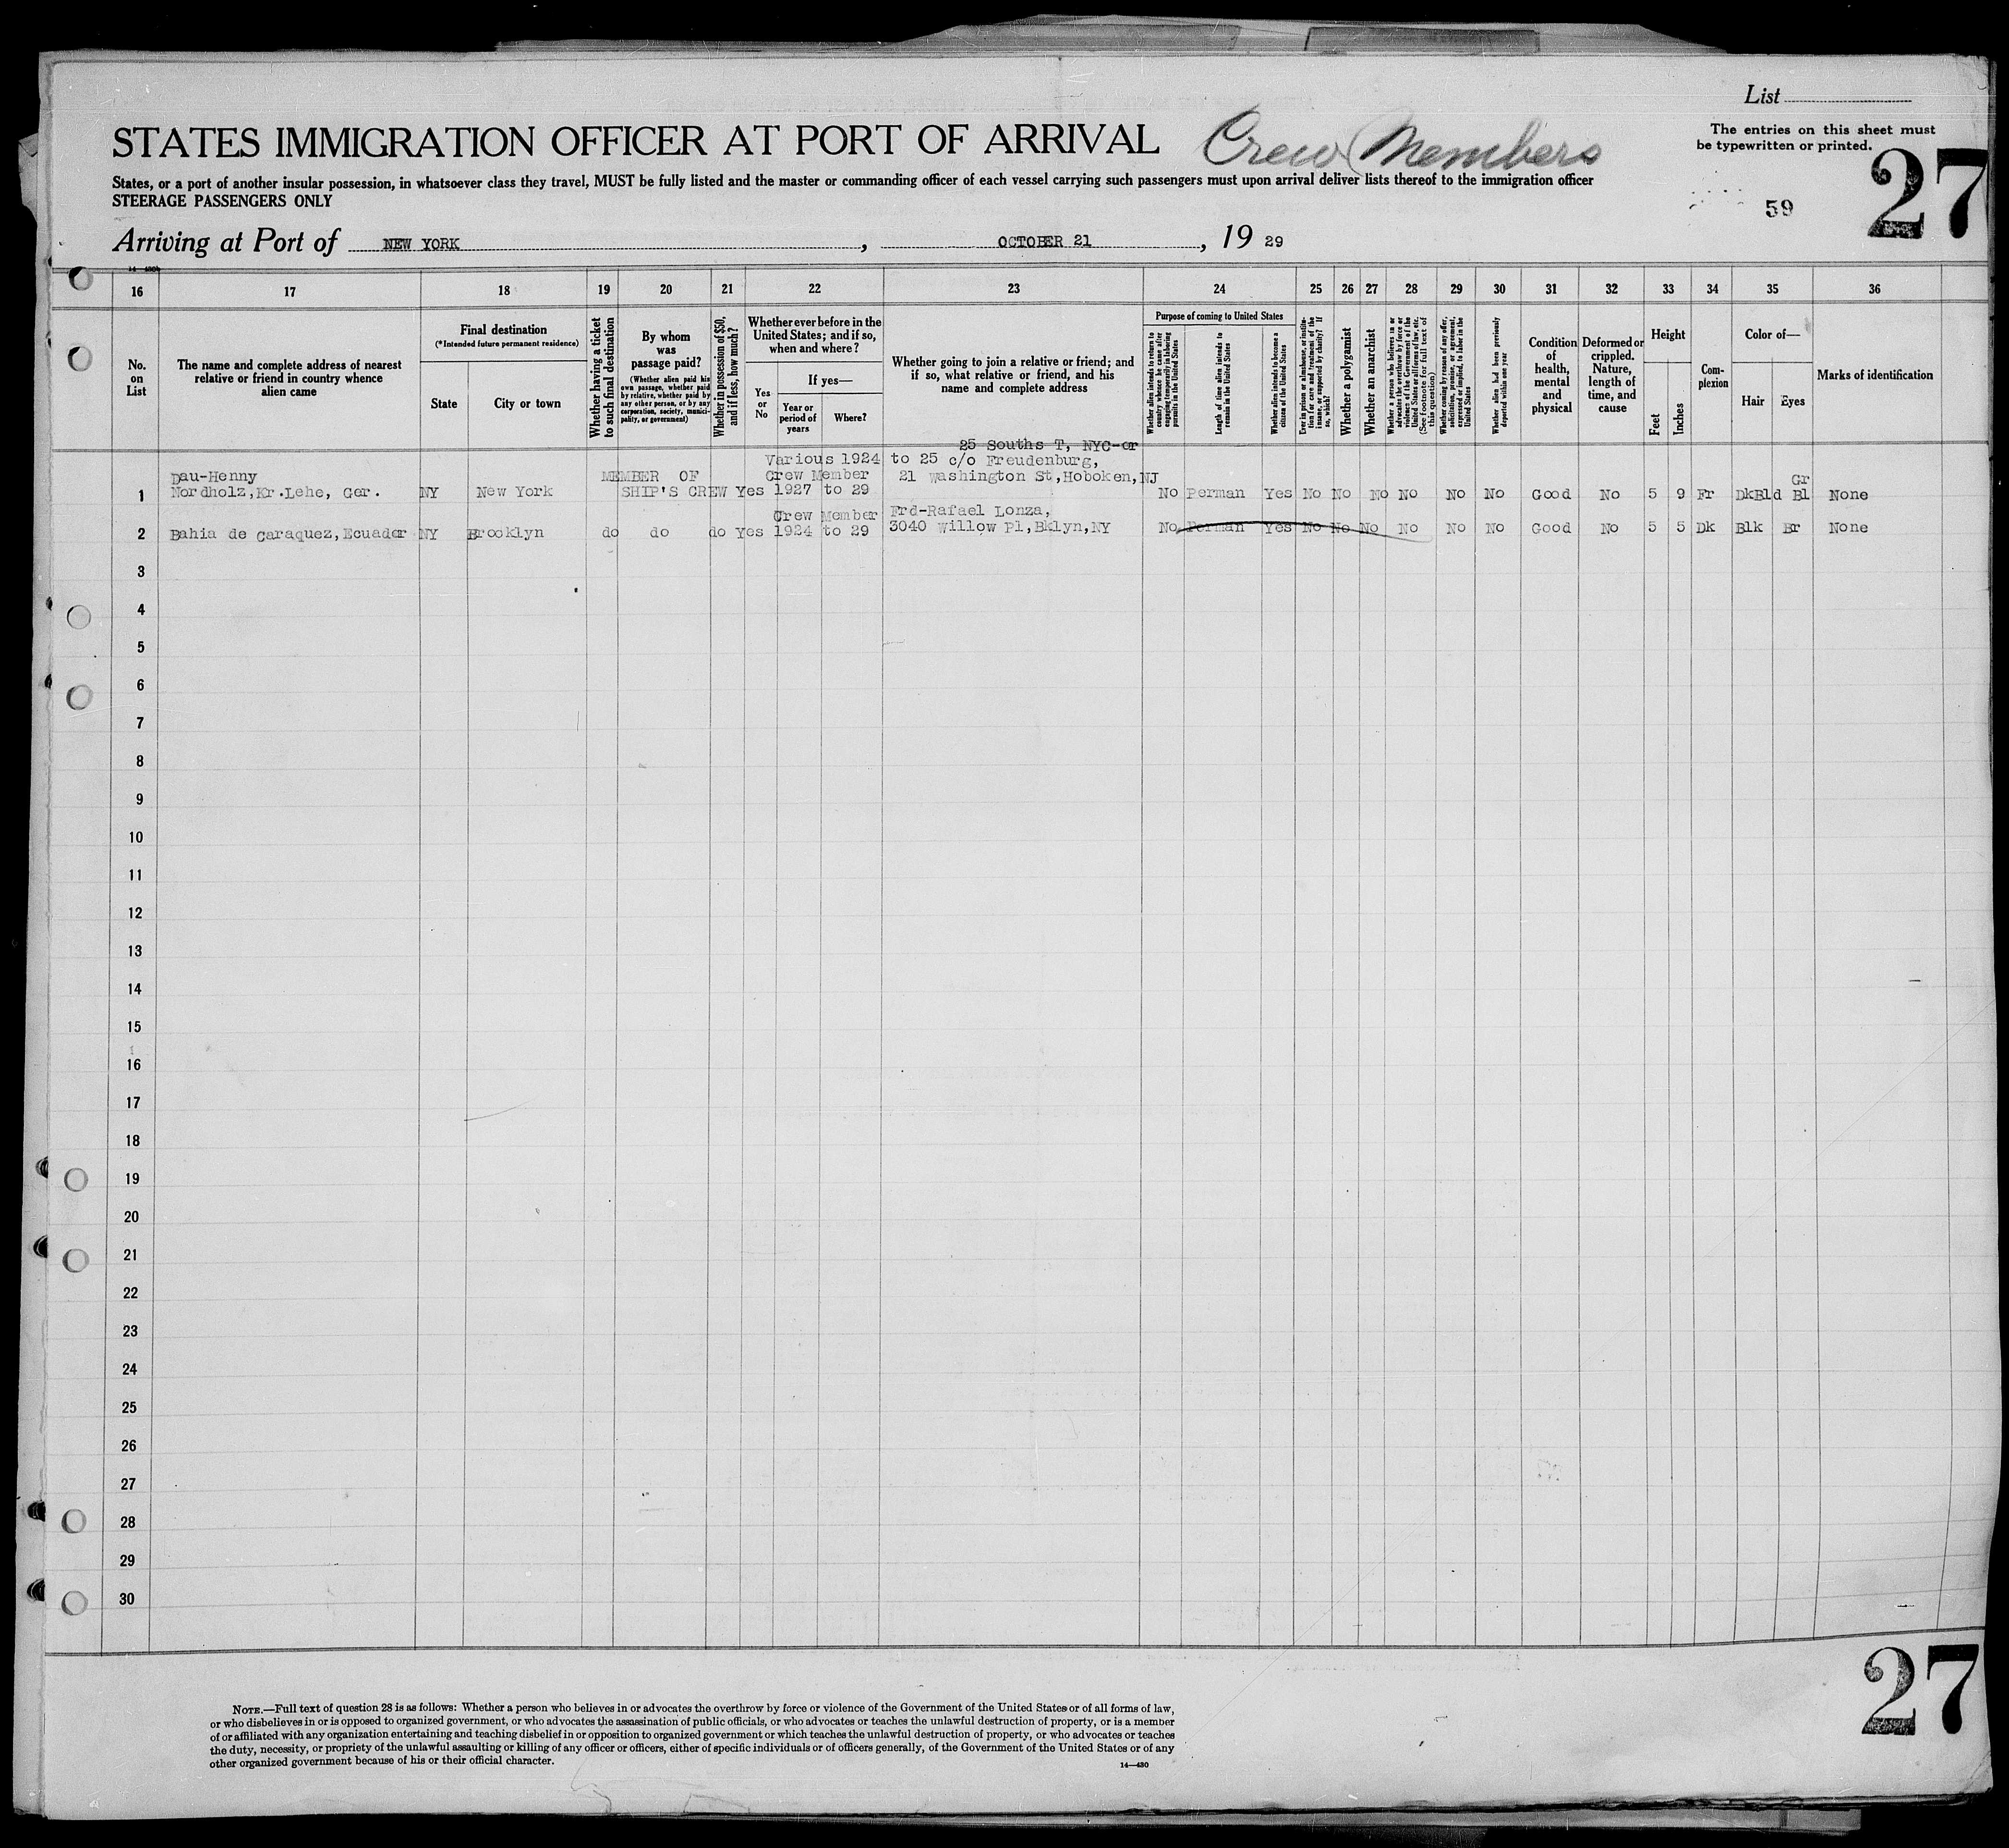 List
The entries on this sheet must
be typewritten or printed.
STATES IMMIGRATION OFFICER AT PORT OF ARRIVAL Crew Members
27
States, or a port of another insular possession, in whatsoever class they travel, MUST be fully listed and the master or commanding officer of each vessel carrying such passengers must upon arrival deliver lists thereof to the immigration officer
STEERAGE PASSENGERS ONLY
59
Arriving at Port of NEW YORK, OCTOBER 21, 19 29
16 17 18 19 20 21 22 23 24 25 26 27 28 29 30 31 32 33 34 35 36
No. on List
The name and complete address of nearest relative or friend in country whence alien came
Final destination
(*Intended future permanent residence)
State
City or town
Whether having a ticket to such final destination
By whom was passage paid?
(Whether alien paid his own passage, whether paid by relative, whether paid by any other person, or by any corporation, society, municipality, or government)
Whether in possession of $50, and if less, how much?
Whether ever before in the United States; and if so, when and where?
Yes or No
If yes—
Year or period of years
Where?
Whether going to join a relative or friend; and if so, what relative or friend, and his name and complete address
Purpose of coming to United States
Whether alien intends to return to country whence he came after engaging temporarily in laboring pursuits in the United States
Length of time alien intends to remain in the United States
Whether alien intends to become a citizen of the United States
Ever in prison or almshouse, or institution for care and treatment of the insane, or supported by charity? If so, which?
Whether a polygamist
Whether an anarchist
Whether a person who believes in or advocates the overthrow by force or violence of the Government of the United States or all forms of law, etc. (See footnote for full text of this question)
Whether coming by reason of any offer, solicitation, promise, or agreement, expressed or implied, to labor in the United States
Whether alien had been previously deported within one year
Condition of health, mental and physical
Deformed or crippled. Nature, length of time, and cause
Height
Feet
Inches
Complexion
Color of—
Hair
Eyes
Marks of identification
25 Souths T, NYC-or
Various 1924 to 25 c/o Freudenburg,
Dau-Henny MEMBER OF Crew Member 21 Washington St,Hoboken,NJ Gr
1 Nordholz,Kr.Lehe, Ger. NY New York SHIP'S CREW Yes 1927 to 29 No Perman Yes No No No No No No Good No 5 9 Fr DkBld Bl None
Crew Member Frd-Rafael Lonza,
2 Bahia de Caraquez,Ecuador NY Brooklyn do do do Yes 1924 to 29 3040 Willow Pl,Bklyn,NY No Perman Yes No No No No No No Good No 5 5 Dk Blk Br None
3
4
5
6
7
8
9
10
11
12
13
14
15
16
17
18
19
20
21
22
23
24
25
26
27
28
29
30
27
NOTE.—Full text of question 28 is as follows: Whether a person who believes in or advocates the overthrow by force or violence of the Government of the United States or of all forms of law,
or who disbelieves in or is opposed to organized government, or who advocates the assassination of public officials, or who advocates or teaches the unlawful destruction of property, or is a member
of or affiliated with any organization entertaining and teaching disbelief in or opposition to organized government or which teaches the unlawful destruction of property, or who advocates or teaches
the duty, necessity, or propriety of the unlawful assaulting or killing of any officer or officers, either of specific individuals or of officers generally, of the Government of the United States or of any
other organized government because of his or their official character.
14—430